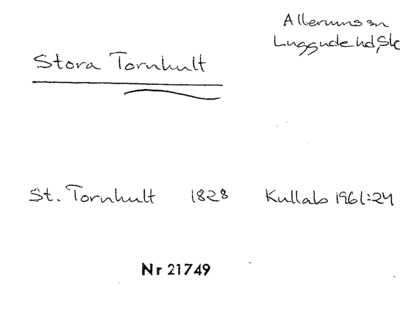 Allerums sn
Luggude hd, Sk
Stora Tornhult
St. Tornhult 1828 Kullab 1961:24
Nr 21749